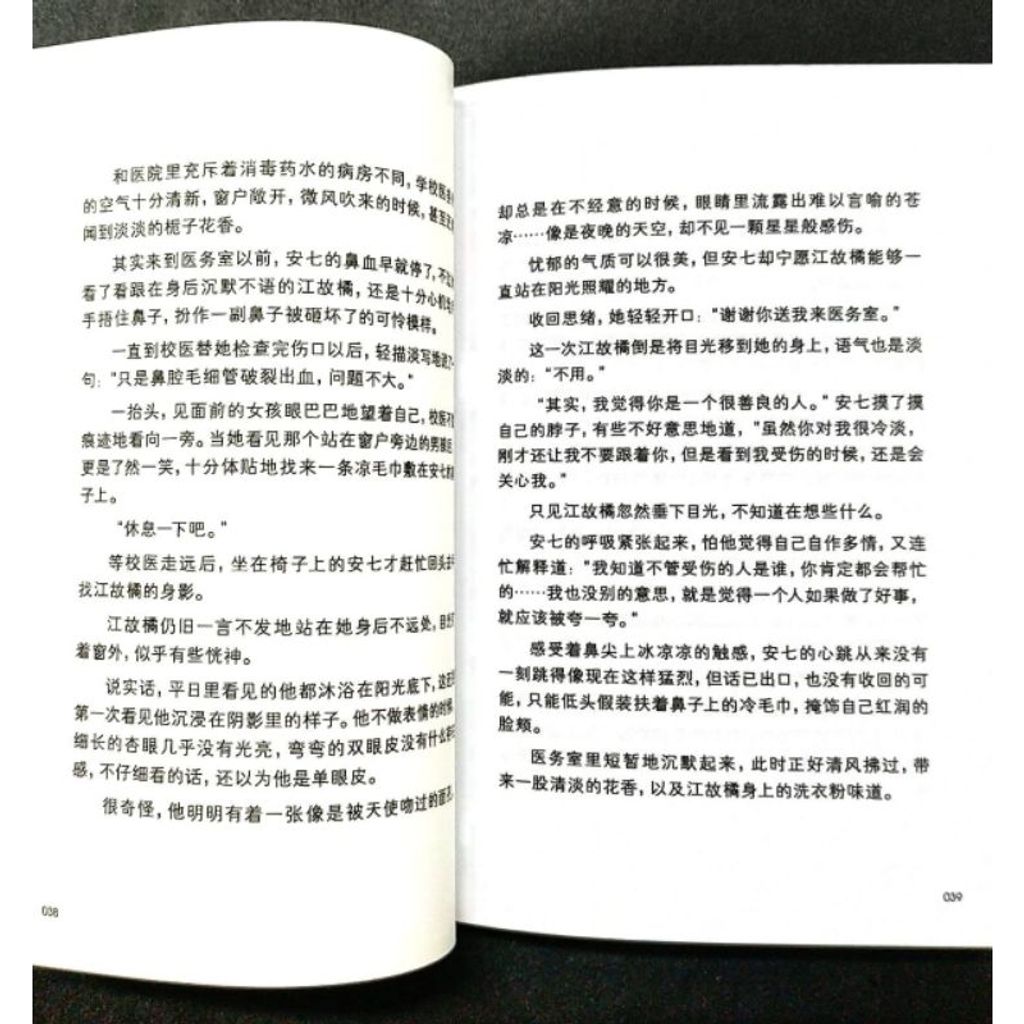 和医院里充斥着消毒药水的病房不同，学校医务
的空气十分清新，窗户敞开，微风吹来的时候，甚至
闻到淡淡的栀子花香。
其实来到医务室以前，安七的鼻血早就停了，
看了看跟在身后沉默不语的江故橘，还是十分心机
手捂住鼻子，扮作一副鼻子被砸坏了的可怜模样。
一直到校医替她检查完伤口以后，轻描淡写地说了一
句：“只是鼻腔毛细管破裂出血，问题不大。”
一抬头，见面前的女孩眼巴巴地望着自己，校医不
痕迹地看向一旁。当她看见那个站在窗户旁边的男孩
更是了然一笑，十分体贴地找来一条凉毛巾敷在安七的
子上。
“休息一下吧。”
等校医走远后，坐在椅子上的安七才赶忙回头
找江故橘的身影。
江故橘仍旧一言不发地站在她身后不远处，
着窗外，似乎有些恍神。
说实话，平日里看见的他都沐浴在阳光底下，这
第一次看见他沉浸在阴影里的样子。他不做表情的时候，
细长的杏眼几乎没有光亮，弯弯的双眼皮没有什么
感，不仔细看的话，还以为他是单眼皮。
很奇怪，他明明有着一张像是被天使吻过的面
038
却总是在不经意的时候，眼睛里流露出难以言喻的苍
凉……像是夜晚的天空，却不见一颗星星般感伤。
忧郁的气质可以很美，但安七却宁愿江故橘能够一
直站在阳光照耀的地方。
收回思绪，她轻轻开口：“谢谢你送我来医务室。”
这一次江故橘倒是将目光移到她的身上，语气也是淡
淡的：“不用。”
“其实，我觉得你是一个很善良的人。”安七摸了摸
自己的脖子，有些不好意思地道，“虽然你对我很冷淡，
刚才还让我不要跟着你，但是看到我受伤的时候，还是会
关心我。”
只见江故橘忽然垂下目光，不知道在想些什么。
安七的呼吸紧张起来，怕他觉得自己自作多情，又连
忙解释道：“我知道不管受伤的人是谁，你肯定都会帮忙
的……我也没别的意思，就是觉得一个人如果做了好事，
就应该被夸一夸。”
感受着鼻尖上冰凉凉的触感，安七的心跳从来没有
一刻跳得像现在这样猛烈，但话已出口，也没有收回的可
能，只能低头假装扶着鼻子上的冷毛巾，掩饰自己红润的
脸颊。
医务室里短暂地沉默起来，此时正好清风拂过，带
来一股清淡的花香，以及江故橘身上的洗衣粉味道。
039